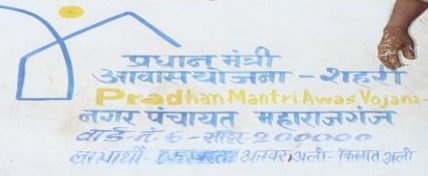 प्रधान मंत्री
आवास योजना - शहरी
Pradhan Mantri Awas Yojana-
नगर पंचायत महाराजगंज
वार्ड नं. 6 - 200000
लाभार्थी - अनवर अली - किस्मत अली